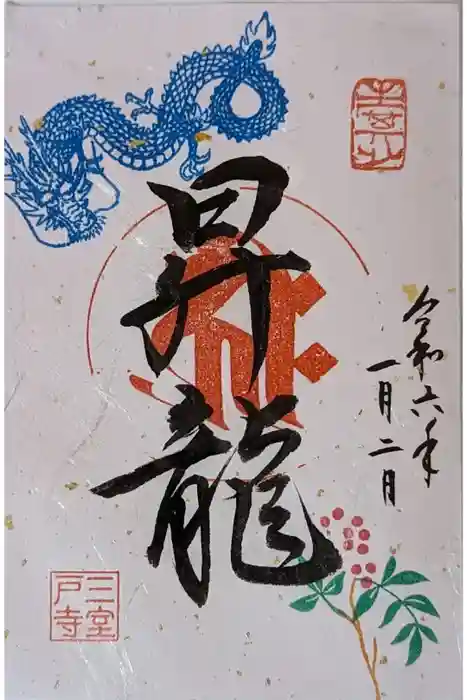 令和六年
一月二日
昇龍
三室
戸寺